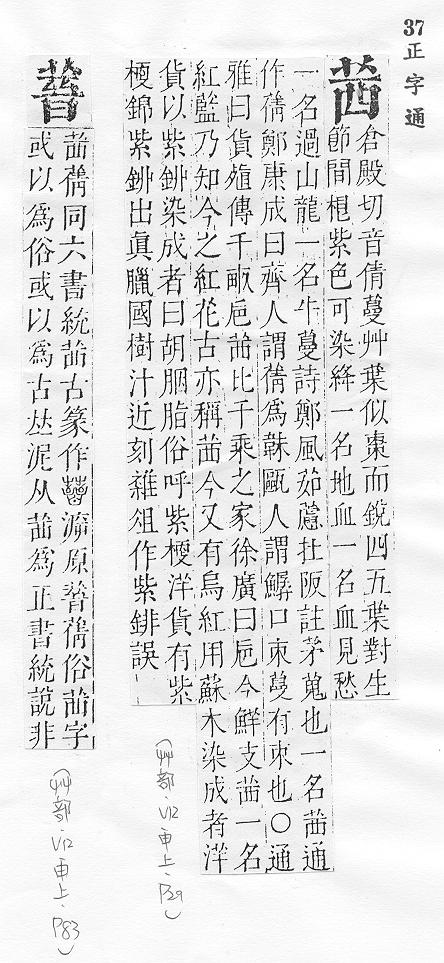 37
正字通
茜
倉殿切音倩蔓艸葉似棗而銳四五葉對生
節間根紫色可染絳一名地血一名血見愁
一名過山龍一名牛蔓詩鄭風茹藘在阪註茅蒐也一名茜通
作蒨鄭康成曰齊人謂蒨爲韎
人謂
口
蔓有
也〇通
雅曰貨殖傳千畝巵茜比千乘之家徐廣曰巵今鮮支茜一名
紅藍乃知今之紅花古亦稱茜今又有烏紅用蘇木染成者洋
貨以紫鉚染成者曰胡胭脂俗呼紫梗洋貨有紫
梗錦紫鉚出眞臘國樹汁近刻雜俎作紫
誤
茜蒨同六書統茜古篆作
原
蒨俗茜字
或以爲俗或以爲古
泥从茜爲正書統說非
(艸部.V12申上.P29)
(艸部.V12申上.P83)